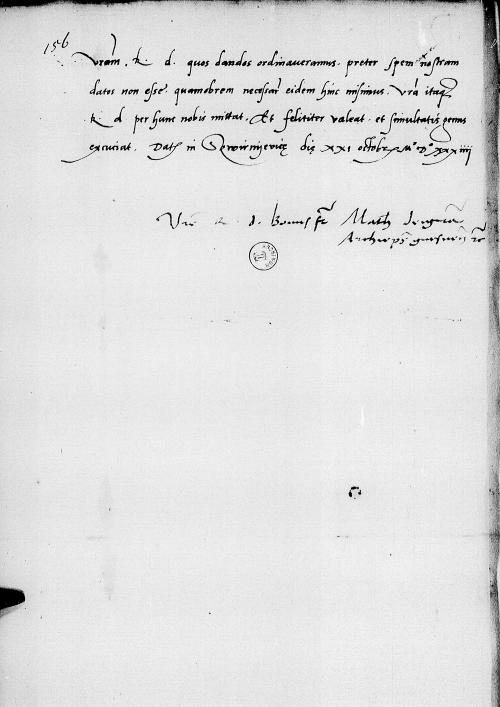 156
Vram . R . d . quos dandos ordinaveramus . preter spem nostram
datos non esse . quamobrem necesar eidem hinc misimus . Vra itaq
R d per hunc nobis mittat . Et feliciter valeat . et simultatis genus
excuciat . Dat in die XXI octobr M° D° XXXIIII
V R . d . Bonus fr Math
Archieps gnesnen